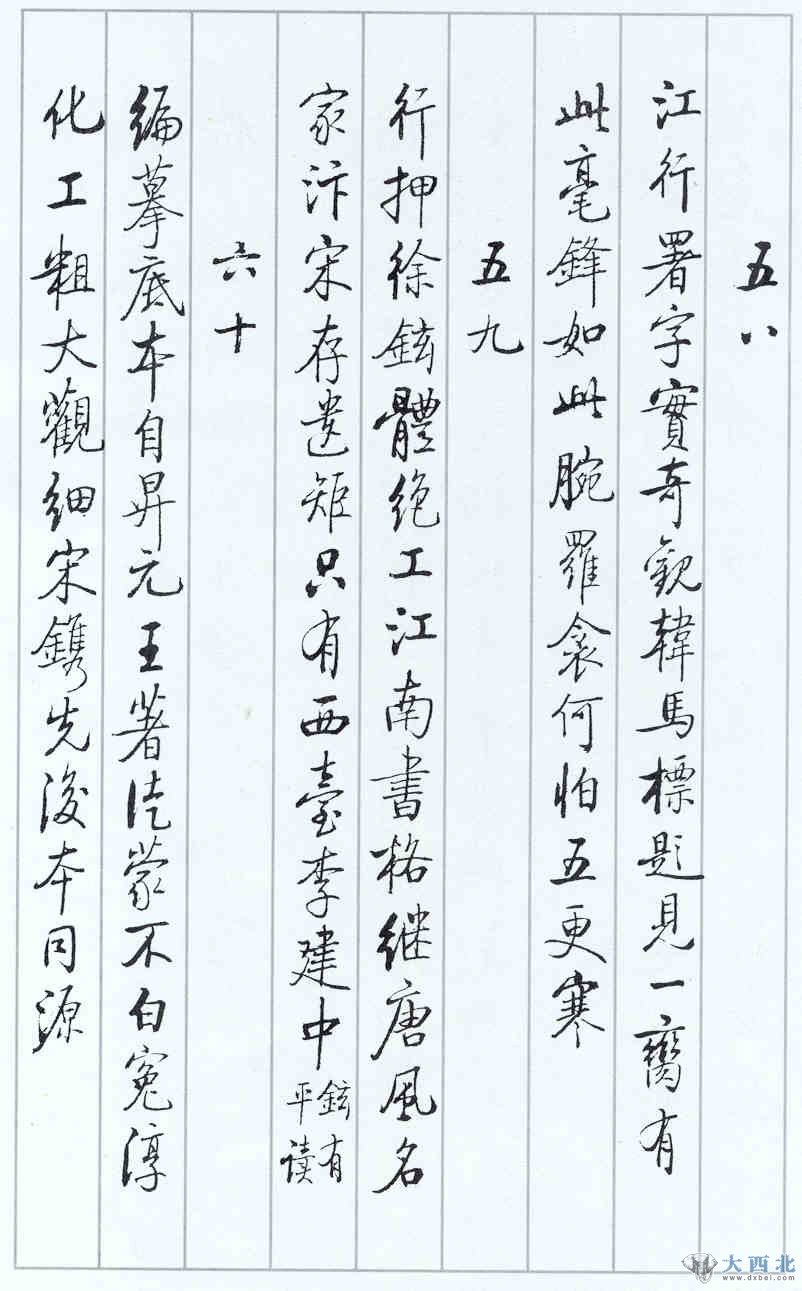 五八
江行署字實奇觀韓馬標題見一臠有
此毫鋒如此腕羅衾何怕五更寒
五九
行押徐鉉體絕工江南書格继唐風名
家汴宋存遺矩只有西臺李建中
鉉有
平读
六十
编摹底本自昇元王著徒蒙不白冤淳
化工粗大觀细宋鐫先後本同源
大西北
www.dxbei.com